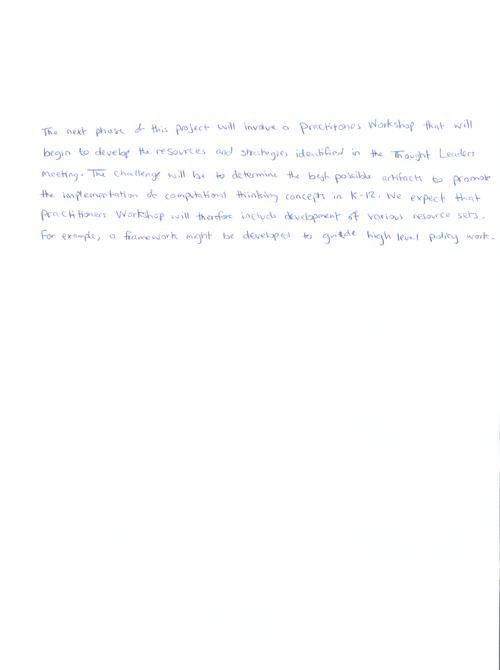 The next phase of this project will involve a Practitoners Workshop that will
begin to develop the resources and strategies identified in the Thought Leaders
meeting. The challenge will be to determine the best possible artifacts to promote
the implementation of computational thinking concepts in K-12. We expect that
Practitioners Workshop will therefore include development of various resource sets.
For example, a framework might be developed to guide high level policy work.